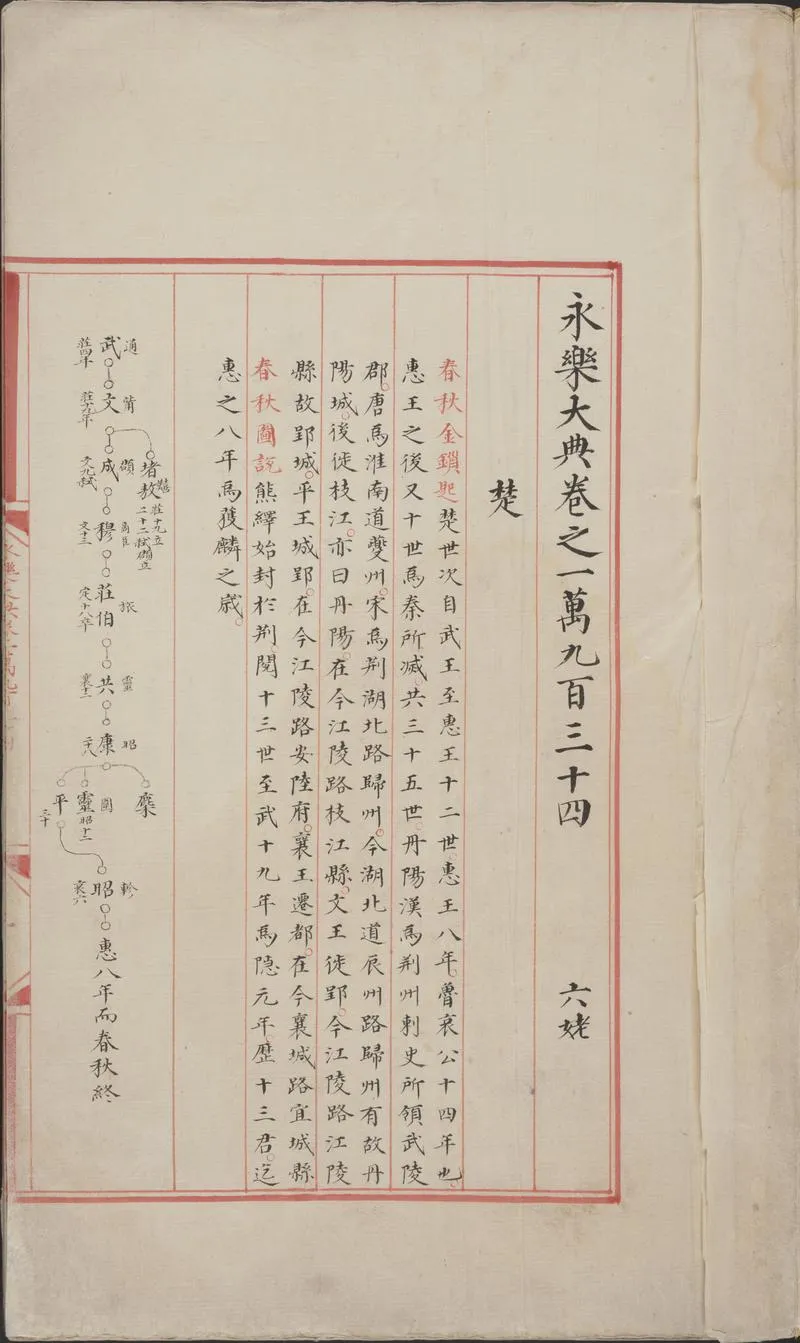 永樂大典卷之一萬九百三十四 六姥
楚
春秋金鎖匙楚世次自武王至惠王十二世。惠王八年。魯哀公十四年也。
惠王之後又十世爲秦所滅。共三十五世。丹陽漢爲荆州刺史所領武陵
郡。唐爲淮南道夔州。宋爲荆湖北路歸州。今湖北道辰州路歸州有故丹
陽城。後徙枝江。亦曰丹陽。在今江陵路枝江縣。文王徙郢。今江陵路江陵
縣故郢城。平王城郢。在今江陵路安陸府。襄王遷都。在今襄城路宜城縣。
春秋圖説熊繹始封於荆。閱十三世至武十九年爲隱元年。歷十三君。迄
惠之八年爲獲麟之歳。
通
武
莊四年
文
莊十九年
堵敖
囏
莊十九立
二十二弑頵立
頵
成
文元弑
商臣
穆
文十三
旅
莊伯
宣十八卒
共
襄十三
昭
康
二十八
麇
圍
靈
昭十三
平
二十六
軫
昭
哀六
惠八年而春秋終